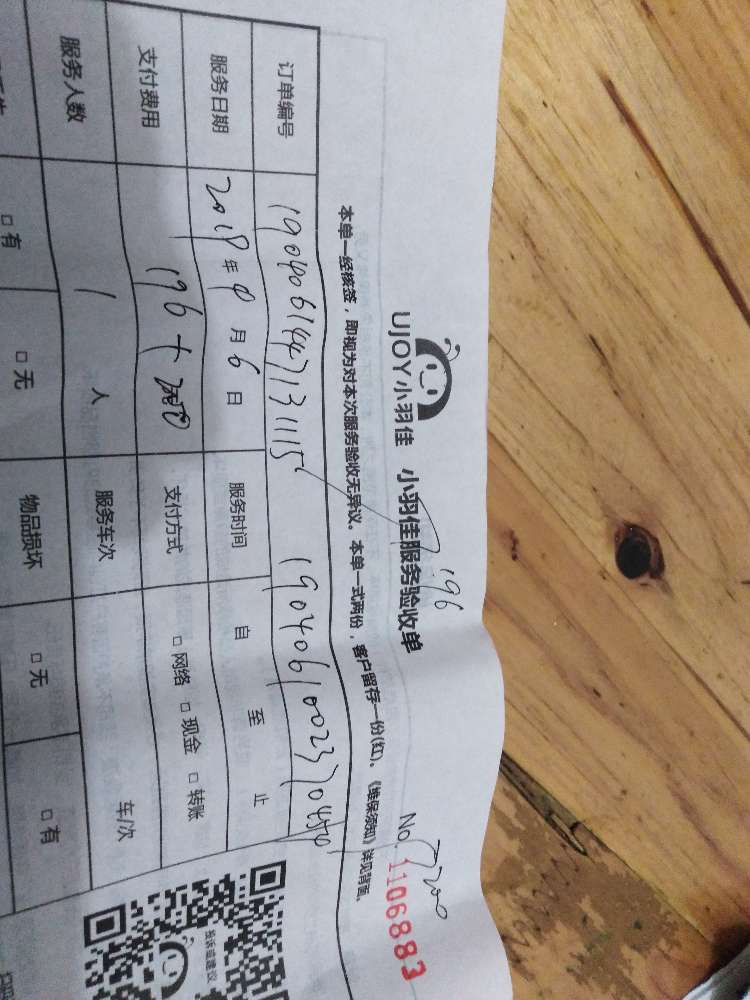 UJOY小羽佳 小羽佳服务验收单
No. 1106883
196
200
本单一经核签，即视为对本次服务验收无异议。本单一式两份，客户留存一份(红)。《维保须知》详见背面。
订单编号 1904061447131115
服务日期 2019年4月6日 服务时间 自 至 止
支付费用 196+200 支付方式 □网络 □现金 □转账
服务人数 1 人 服务车次 车/次
□有 □无 物品损坏 □无 □有
投诉或建议